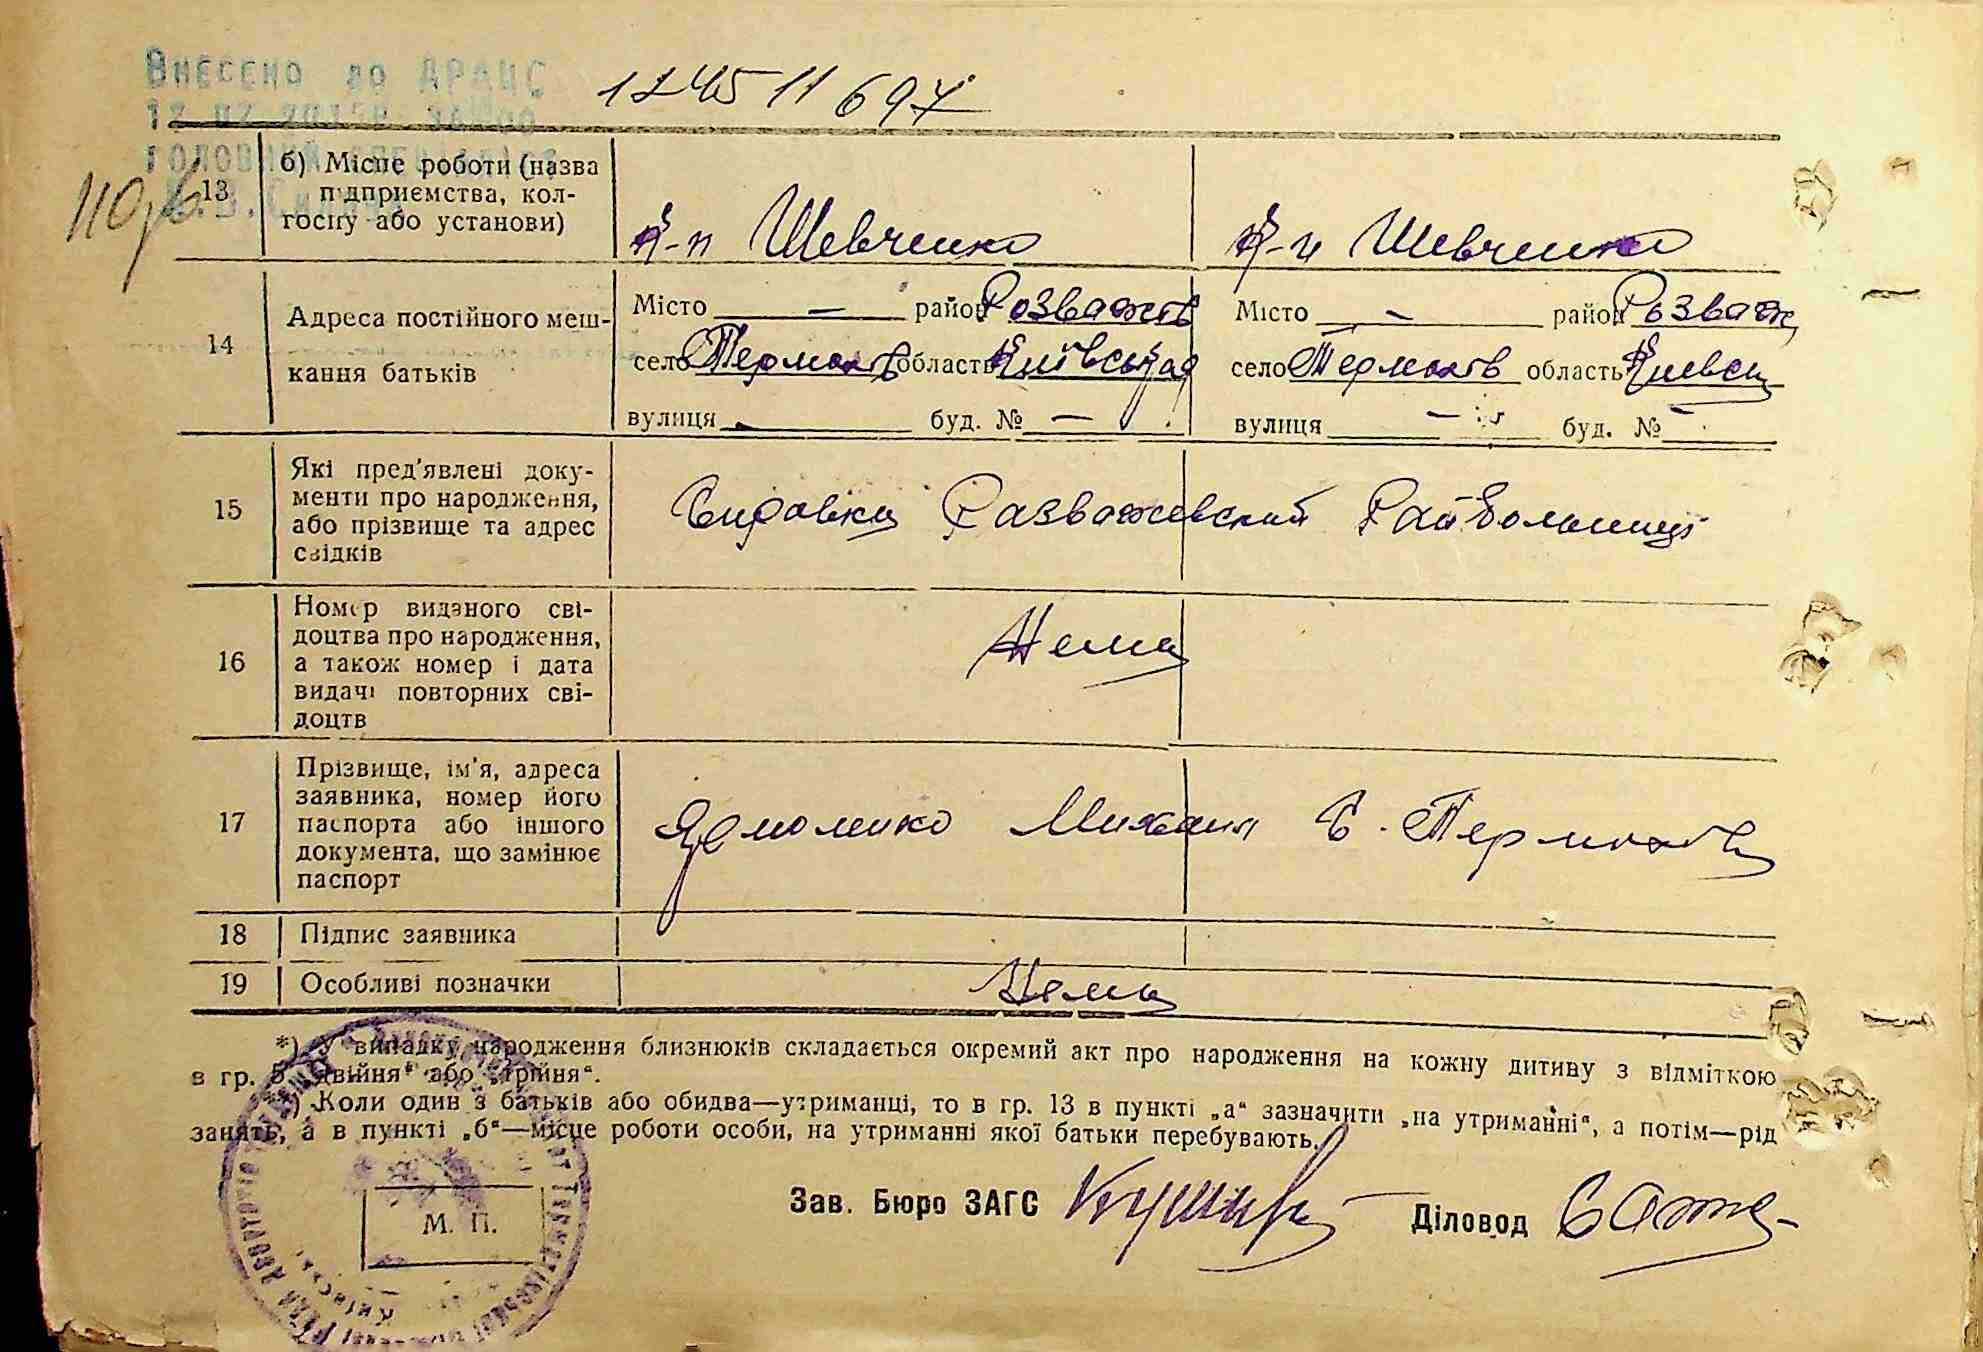 Внесено до ДРАЦС
124511697
110 зв
13
б) Місце роботи (назва
підприємства, кол-
госпу або установи)
к-п Шевченко
к-п Шевченко
14
Адреса постійного меш-
кання батьків
Місто — район Розважів
село Термахів область Київська
вулиця — буд. № —
Місто — район Розваж
село Термахів область Киевск
вулиця — буд. № —
15
Які пред'явлені доку-
менти про народження,
або прізвище та адрес
свідків
Справка Разважевский Райбольниці
16
Номер виданого сві-
доцтва про народження,
а також номер і дата
видачі повторних сві-
доцтв
Нема
17
Прізвище, ім'я, адреса
заявника, номер його
паспорта або іншого
документа, що замінює
паспорт
Ярмоленко Михаил С. Термахів
18
Підпис заявника
19
Особливі позначки
Нема
*) У випадку народження близнюків складається окремий акт про народження на кожну дитину з відміткою
в гр. 5 „двійня“ або „трійня“.
**) Коли один з батьків або обидва—утриманці, то в гр. 13 в пункті „а“ зазначити „на утриманні“, а потім—рід
занять, а в пункті „б“—місце роботи особи, на утриманні якої батьки перебувають.
М. П.
Зав. Бюро ЗАГС
Діловод